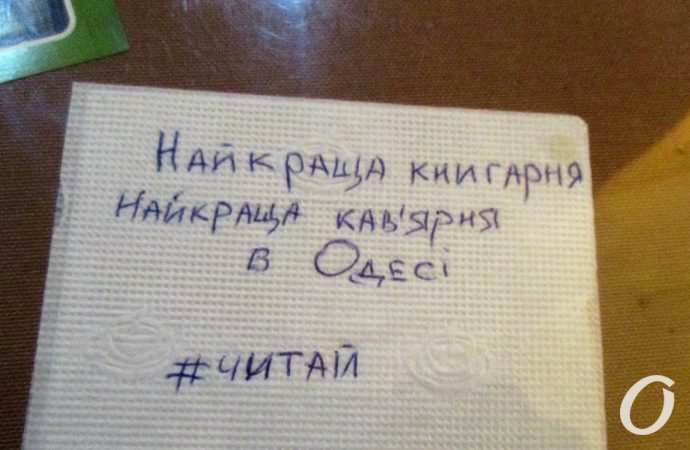 Найкраща книгарня
Найкраща кав'ярня
в Одесі
#читай
O